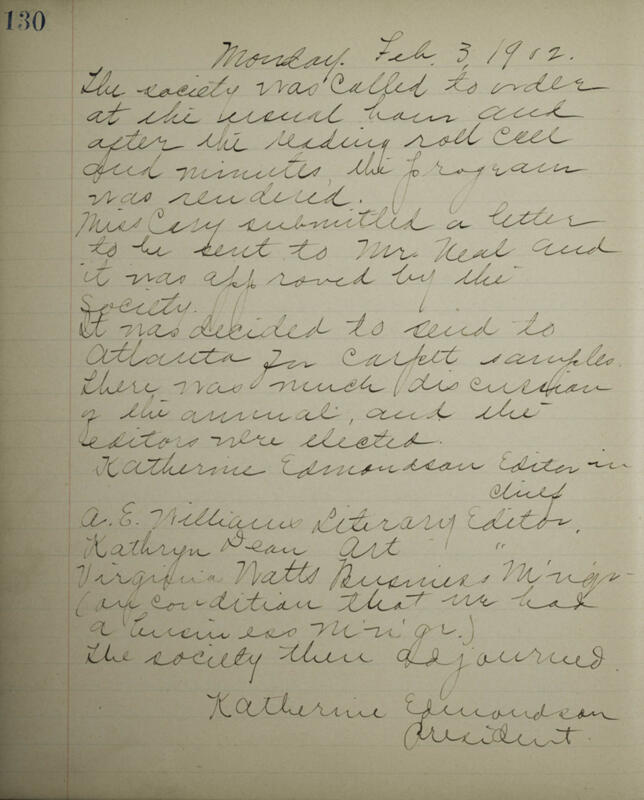 130
Monday. Feb. 3, 1902.
The society was called to order
at the usual hour and
after the reading roll call
and minutes, the program
was rendered.
Miss Cary submitted a letter
to be sent to Mr. Neal and
it was approved by the
Society.
It was decided to send to
Atlanta for carpet samples.
There was much discussion
of the annual, and the
editors were elected.
Katherine Edmondson Editor in
chief
A. E. Williams Literary Editor.
Kathryn Dean Art "
Virginia Watts Business M'n'g'r
(on condition that we had
a business M'n'gr.)
The society then adjourned.
Katherine Edmondson
President.